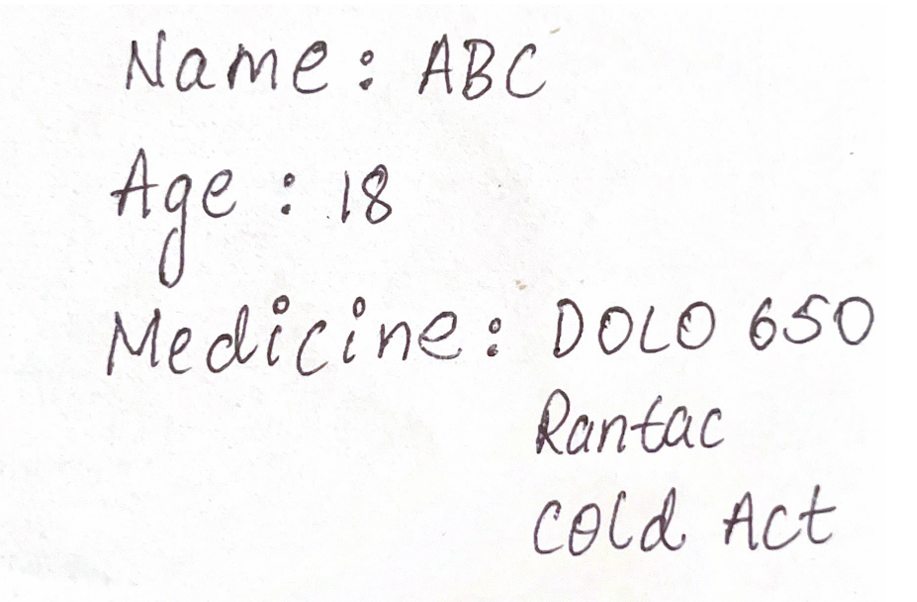 Name: ABC
Age: 18
Medicine: DOLO 650
Rantac
Cold Act